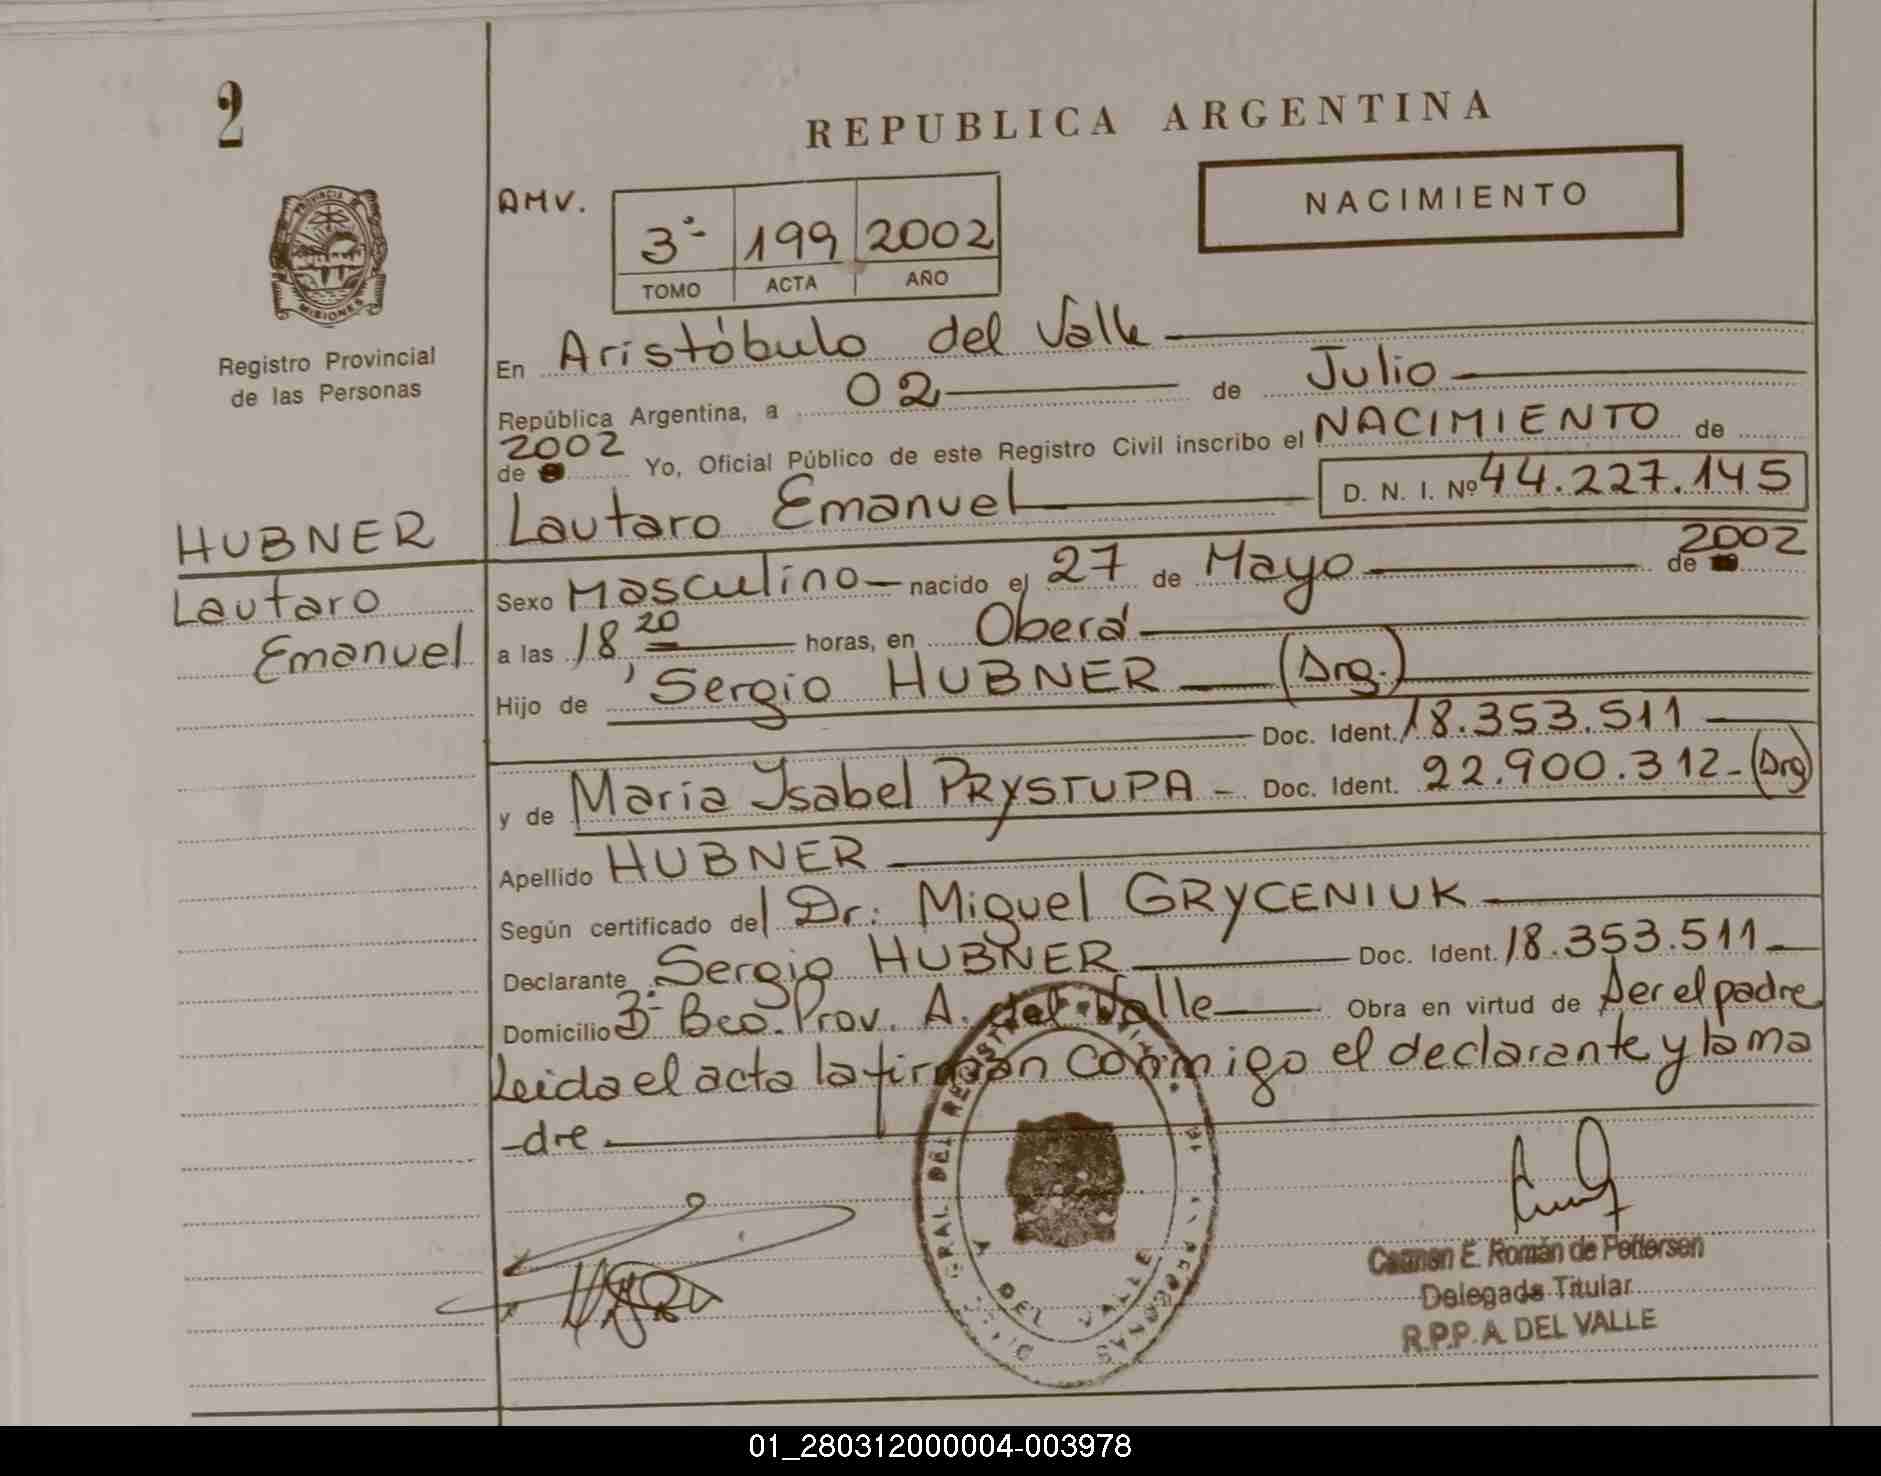 2
REPUBLICA ARGENTINA
PROVINCIA DE
MISIONES
AMV.
3º 199 2002
TOMO ACTA AÑO
NACIMIENTO
Registro Provincial
de las Personas
En Aristóbulo del Valle
República Argentina, a 02 de Julio
de 2002 Yo, Oficial Público de este Registro Civil inscribo el NACIMIENTO de
Lautaro Emanuel D. N. I. Nº 44.227.145
HUBNER
Lautaro
Emanuel
Sexo Masculino nacido el 27 de Mayo de 2002
a las 18 20 horas, en Oberá
Hijo de Sergio HUBNER (Arg.)
Doc. Ident. 18.353.511
y de María Ysabel PRYSTUPA - Doc. Ident. 22.900.312 - (Arg)
Apellido HUBNER
Según certificado del Dr. Miguel GRYCENIUK
Declarante Sergio HUBNER Doc. Ident. 18.353.511
Domicilio Bº Bco. Prov. A. del Valle Obra en virtud de ser el padre
Leida el acta la firman conmigo el declarante y la ma
-dre
GRAL DEL REGISTRO
PERSONAS
A DEL VALLE
Carmen E. Román de Pettersen
Delegada Titular
R.P.P. A. DEL VALLE
01_280312000004-003978